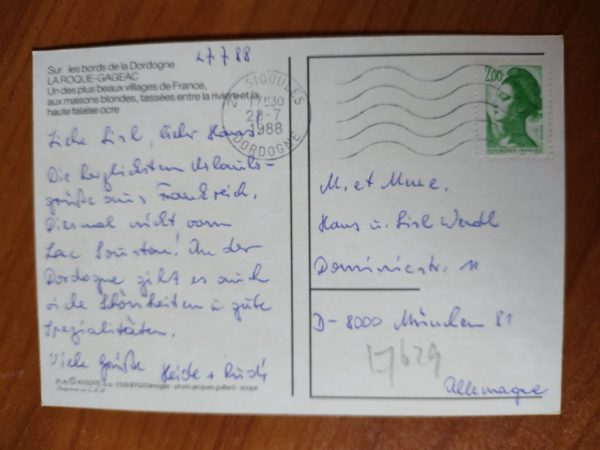 27.7.88
Sur les bords de la Dordogne
LA ROQUE-GAGEAC
Un des plus beaux villages de France,
aux maisons blondes, tassées entre la rivière et la
haute falaise ocre
Liebe Lisl, lieber Hans!
Die herzlichsten Urlaubs-
grüße aus Frankreich.
Diesmal nicht vom
Lac
An der
Dordogne gibt es auch
viele Schönheiten u. gute
Spezialitäten.
Viele Grüße Heide + Rudi
SIGOULES
28-7
1988
DORDOGNE
2,00
REPUBLIQUE FRANCAISE
M. et Mme.
Hans u. Lisl
Dominicstr. 11
D-8000 München 81
17629
Allemagne